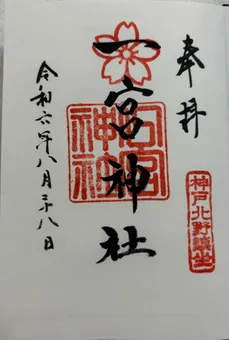 奉拝
一宮神社
一宮神社
神戸北野鎮座
令和六年八月二十八日